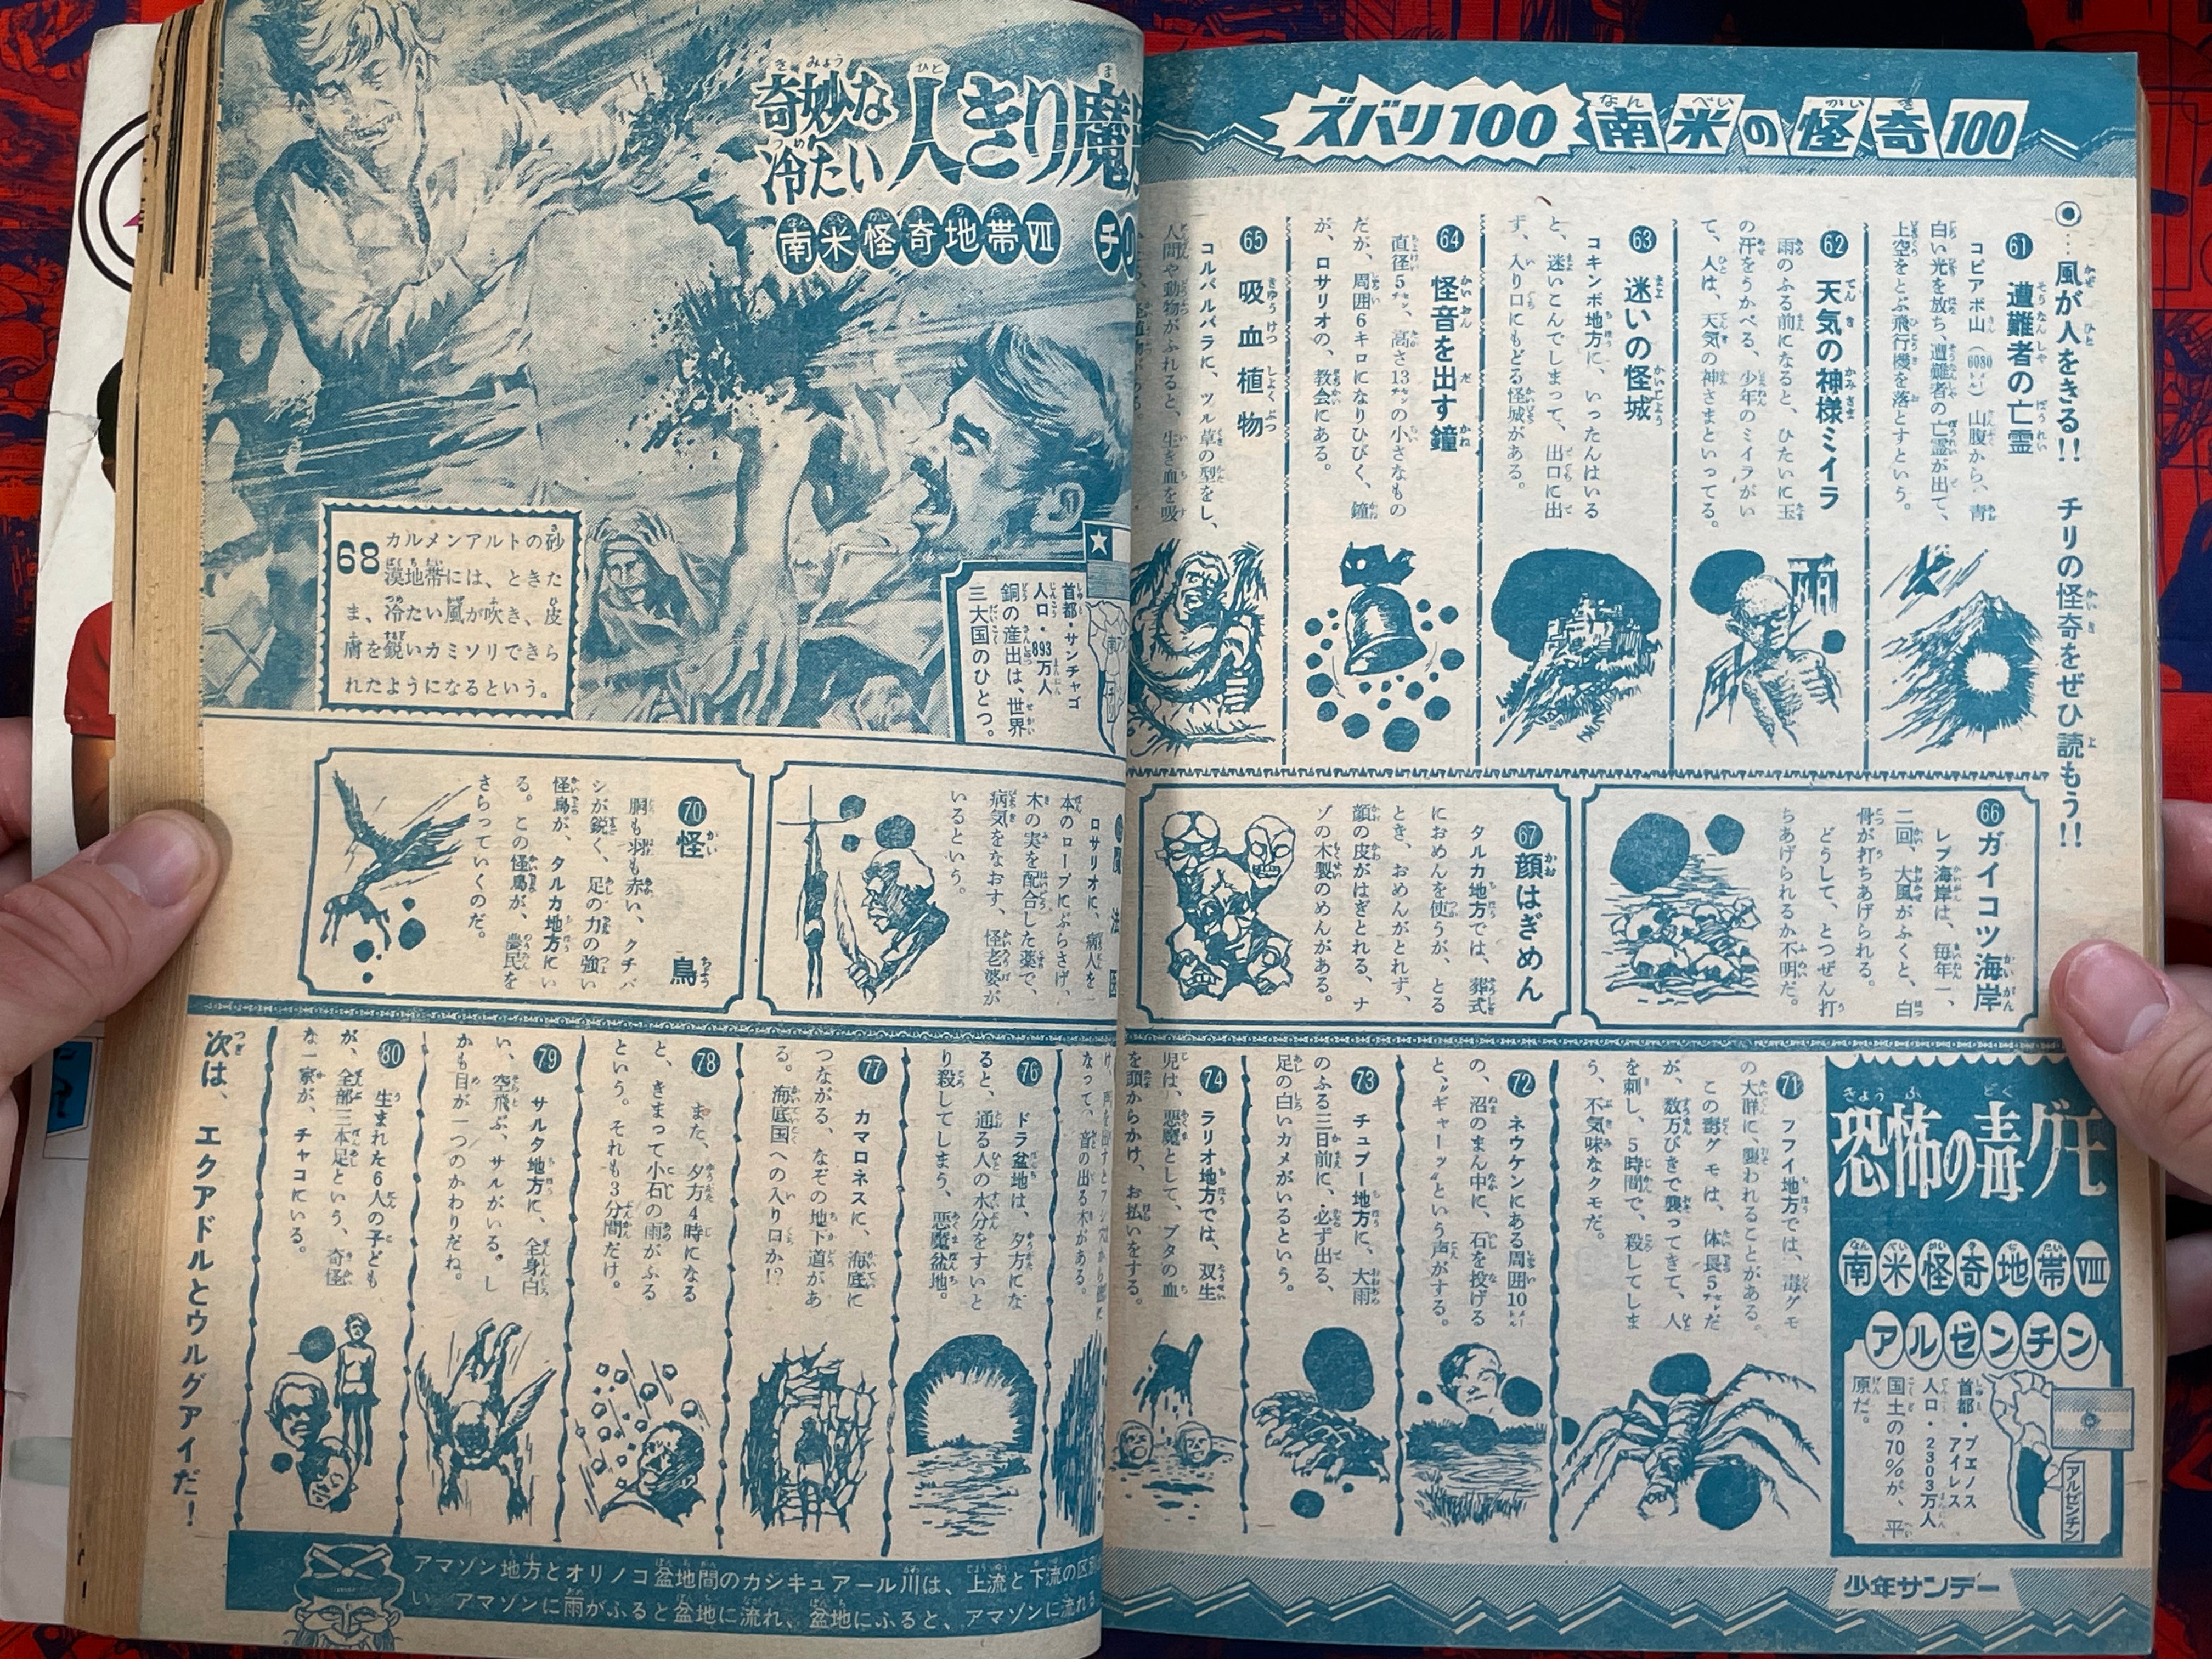 ズバリ100 南米の怪奇100
◉…風が人をきる!! チリの怪奇をぜひ読もう!!
61 遭難者の亡霊
コピアポ山(6080メートル)山腹から、青
白い光を放ち、遭難者の亡霊が出て、
上空をとぶ飛行機を落とすという。
62 天気の神様ミイラ
雨のふる前になると、ひたいに玉
の汗をうかべる、少年のミイラがい
て、人は、天気の神さまといってる。
雨
63 迷いの怪城
コキンボ地方に、いったんはいる
と、迷いこんでしまって、出口に出
ず、入り口にもどる怪城がある。
64 怪音を出す鐘
直径5センチ、高さ13センチの小さなもの
だが、周囲6キロになりひびく、鐘
が、ロサリオの、教会にある。
65 吸血植物
コルパルパラに、ツル草の型をし、
人間や動物がふれると、生き血を吸
66 ガイコツ海岸
レブ海岸は、毎年一、
二回、大風がふくと、白
骨が打ちあげられる。
どうして、とつぜん打
ちあげられるか不明だ。
67 顔はぎめん
タルカ地方では、葬式
におめんを使うが、とる
とき、おめんがとれず、
顔の皮がはぎとれる、ナ
ゾの木製のめんがある。
奇妙な
冷たい
人きり魔
南米怪奇地帯Ⅶ チ
首都・サンチャゴ
人口・893万人
銅の産出は、世界
三大国のひとつ。
68 カルメンアルトの砂
漠地帯には、ときた
ま、冷たい風が吹き、皮
膚を鋭いカミソリできら
れたようになるという。
ロサリオに、病人を一
本のロープにぶらさげ、
木の実を配合した薬で、
病気をなおす、怪老婆が
いるという。
70 怪鳥
胴も羽も赤い、クチバ
シが鋭く、足の力の強い
怪鳥が、タルカ地方にい
る。この怪鳥が、農民を
さらっていくのだ。
恐怖の毒グモ
南米怪奇地帯Ⅷ
アルゼンチン
首都・ブエノス
アイレス
人口・2303万人
国土の70%が、平
原だ。
アルゼンチン
71 フフイ地方では、毒グモ
の大群に、襲われることがある。
この毒グモは、体長5センチだ
が、数万びきで襲ってきて、人
を刺し、5時間で、殺してしま
う、不気味なクモだ。
72 ネウケンにある周囲10メートル
の、沼のまん中に、石を投げる
と、〝ギャーッ〟という声がする。
73 チュブー地方に、大雨
のふる三日前に、必ず出る、
足の白いカメがいるという。
74 ラリオ地方では、双生
児は、悪魔として、ブタの血
を頭からかけ、お払いをする。
なって、音の出る木がある。
76 ドラ盆地は、夕方にな
ると、通る人の水分をすいと
り殺してしまう、悪魔盆地。
77 カマロネスに、海底に
つながる、なぞの地下道があ
る。海底国への入り口か!?
78 また、夕方4時になる
と、きまって小石の雨がふる
という。それも3分間だけ。
79 サルタ地方に、全身白
い、空飛ぶ、サルがいる。し
かも目が一つのかわりだね。
80 生まれた6人の子ども
が、全部三本足という、奇怪
な一家が、チャコにいる。
次は、エクアドルとウルグアイだ!
アマゾン地方とオリノコ盆地間のカシキュアール川は、上流と下流の区別
い アマゾンに雨がふると盆地に流れ、盆地にふると、アマゾンに流れる
少年サンデー